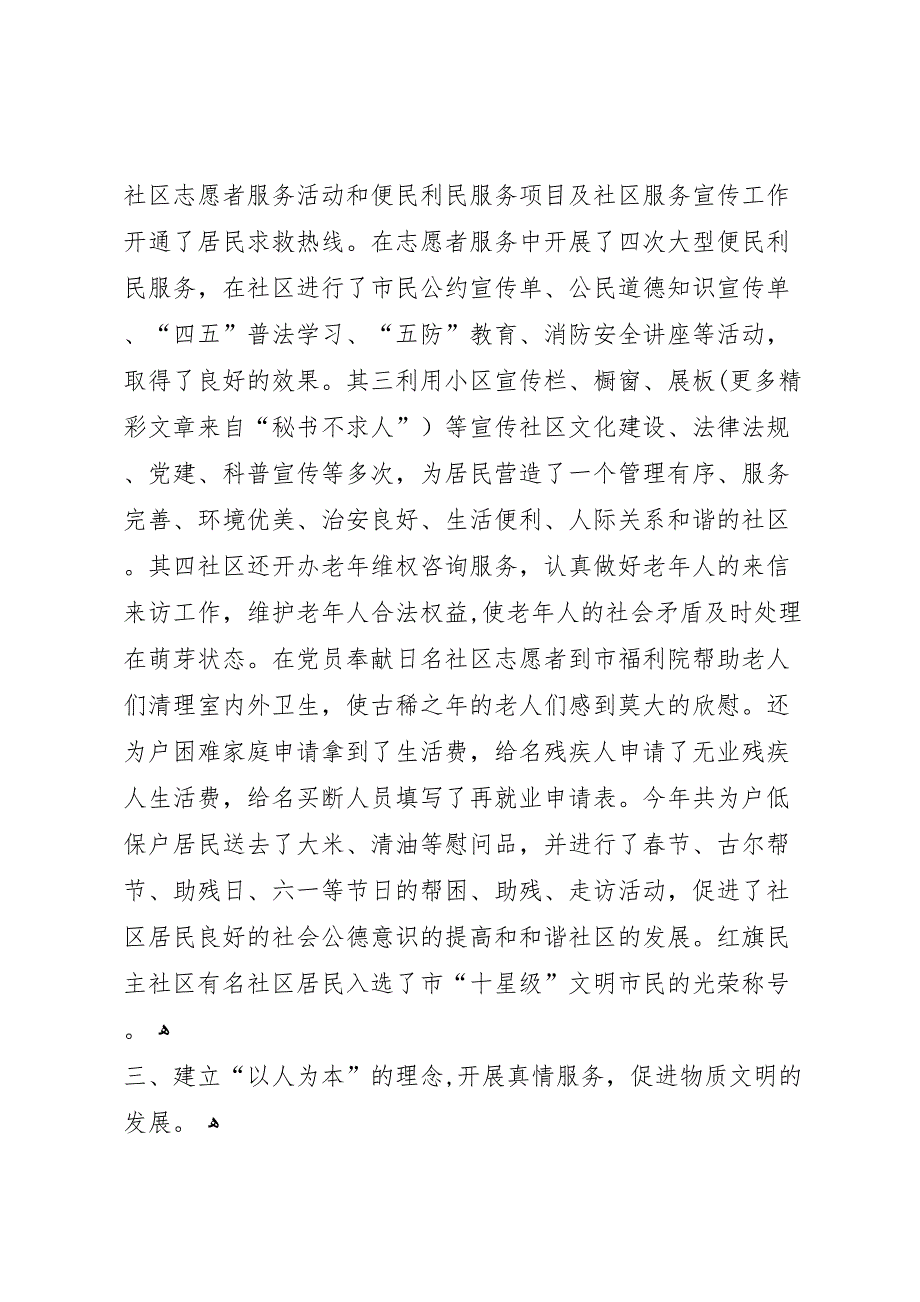 社区志愿者服务活动和便民利民服务项目及社区服务宣传工作
开通了居民求救热线。在志愿者服务中开展了四次大型便民利
民服务，在社区进行了市民公约宣传单、公民道德知识宣传单
、“四五”普法学习、“五防”教育、消防安全讲座等活动，
取得了良好的效果。其三利用小区宣传栏、橱窗、展板(更多精
彩文章来自“秘书不求人”）等宣传社区文化建设、法律法规
、党建、科普宣传等多次，为居民营造了一个管理有序、服务
完善、环境优美、治安良好、生活便利、人际关系和谐的社区
。其四社区还开办老年维权咨询服务，认真做好老年人的来信
来访工作，维护老年人合法权益,使老年人的社会矛盾及时处理
在萌芽状态。在党员奉献日名社区志愿者到市福利院帮助老人
们清理室内外卫生，使古稀之年的老人们感到莫大的欣慰。还
为户困难家庭申请拿到了生活费，给名残疾人申请了无业残疾
人生活费，给名买断人员填写了再就业申请表。今年共为户低
保户居民送去了大米、清油等慰问品，并进行了春节、古尔帮
节、助残日、六一等节日的帮困、助残、走访活动，促进了社
区居民良好的社会公德意识的提高和和谐社区的发展。红旗民
主社区有名社区居民入选了市“十星级”文明市民的光荣称号
。 ﻫ
三、建立“以人为本”的理念,开展真情服务，促进物质文明的
发展。 ﻫ